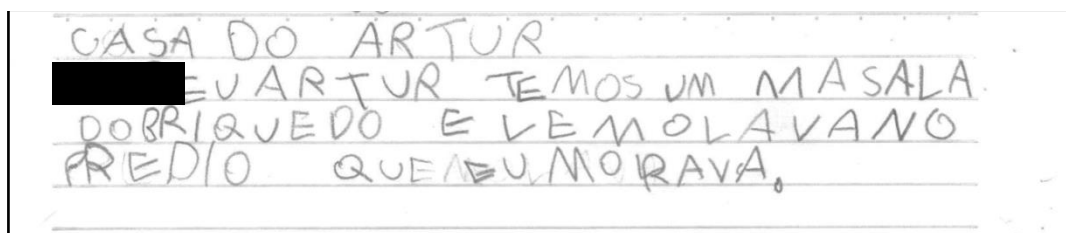 CASA DO ARTUR
EU ARTUR TEMOS UM MASALA
DOBRIQUEDO E LEMOLAVANO
PREDIO QUE NEU MORAVA.